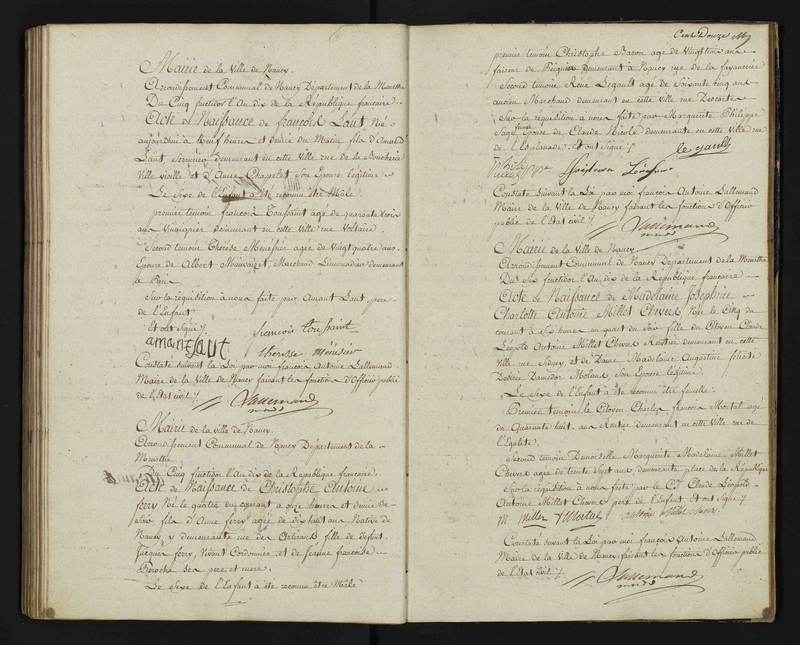 Mairie de la Ville de Nancy.
Arrondissement Communal de Nancy Département de la Meurthe
Du Cinq fructidor l'An dix de la République française.
Acte de Naissance de françois Laut Né
aujourd'hui à Neuf heures et demie du Matin fils d'Amand
Laut, Serrurier demeurant en cette Ville rue de la Boucherie
Ville vieille et d'Anne Chapelet Son Epouse légitime.
Le Sexe de l'Enfant a été reconnu être Mâle
premier temoin francois Toussaint agé de quarante trois
ans Vinaigrier demeurant en cette Ville rue Voltaire.
Second temoin Therese Menissier agée de Vingt quatre ans
Epouse de Albert Marchand Limonadier demeurant
à
Sur la réquisition à nous faite par Amant Laut pere
de l'Enfant
Et ont Signé /.
francois toussaint
amant laut
therese menisier
Constaté suivant la Loi par moi françois Antoine Lallemand
Maire de la Ville de Nancy faisant les fonctions d'Officier public
de l'Etat civil /.
Lallemand
Mairie de la Ville de Nancy.
Arrondissement Communal de Nancy Département de la
Meurthe
Du Cinq fructidor l'An dix de la République française
Acte de Naissance de Christophe Antoine
ferry Né le quatre du courant à onze heures et demie du
Soir fils d'Anne ferry agée de dix huit ans Native de
Nancy y demeurante rue des fille de défunt
Jacques ferry, Vivant Cordonnier et de Jeanne françoise
ses pere et mere.
Le Sexe de l'Enfant a été reconnu être Mâle
Cent Douze
premier temoin Christophe Baron agé de Vingt ans
faiseur de demeurant à Nancy rue de la
Second temoin René Legault agé de Soixante cinq ans
ancien Marchand demeurant en cette Ville rue Descartes
Sur la réquisition à nous faite par Marguerite Philippe
Sage femme Epouse de Claude Nicolas demeurante en cette Ville rue
de l'Esplanade. Et ont Signé /.
le gault
Constaté suivant la Loi par moi françois Antoine Lallemand
Maire de la Ville de Nancy faisant les fonctions d'Officier
public de l'Etat civil /.
Lallemand
Mairie de la Ville de Nancy
Arrondissement Communal de Nancy Département de la Meurthe
Du Six fructidor l'An dix de la République française
Acte de Naissance de Madelaine Josephine
Charlotte Antoine Millet Chevers Née le Cinq du
courant à Six heures un quart du Soir fille du Citoyen Claude
Léopold Antoine Millet Chevers Rentier demeurant en cette
Ville rue et de Dame Madelaine Augustine félicité
Desirée Son Epouse légitime.
Le Sexe de l'Enfant a été reconnu être femelle.
Premier temoin le Citoyen Charles françois Mortal agé
de Quarante huit ans Rentier demeurant en cette Ville rue de
l'Egalité.
Second temoin Demoiselle Marguerite Madelaine Millet
Chevers agée de trente Sept ans demeurante place de la République
Sur la réquisition à nous faite par le Cen Claude Léopold
Antoine Millet Chevers pere de l'Enfant Et ont Signé /.
M Millet Mortal antoine Millet Chevers
Constaté suivant la Loi par moi françois Antoine Lallemand
Maire de la Ville de Nancy faisant les fonctions d'Officier public
de l'Etat civil /.
Lallemand